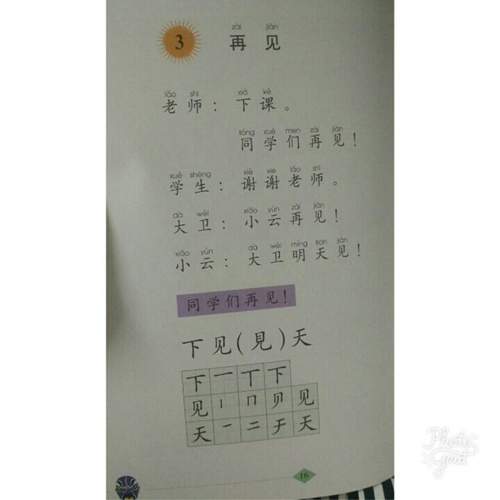 zài jiàn
3 再见
lǎo shī xià kè
老师：下课。
tóng xué men zài jiàn
同学们再见！
xué shēng xiè xie lǎo shī
学生：谢谢老师。
dà wèi xiǎo yún zài jiàn
大卫：小云再见！
xiǎo yún dà wèi míng tiān jiàn
小云：大卫明天见！
同学们再见！
下见(見)天
下 一 丅 下
见 丨 冂 贝 见
天 一 二 于 天
16
Photo Grid